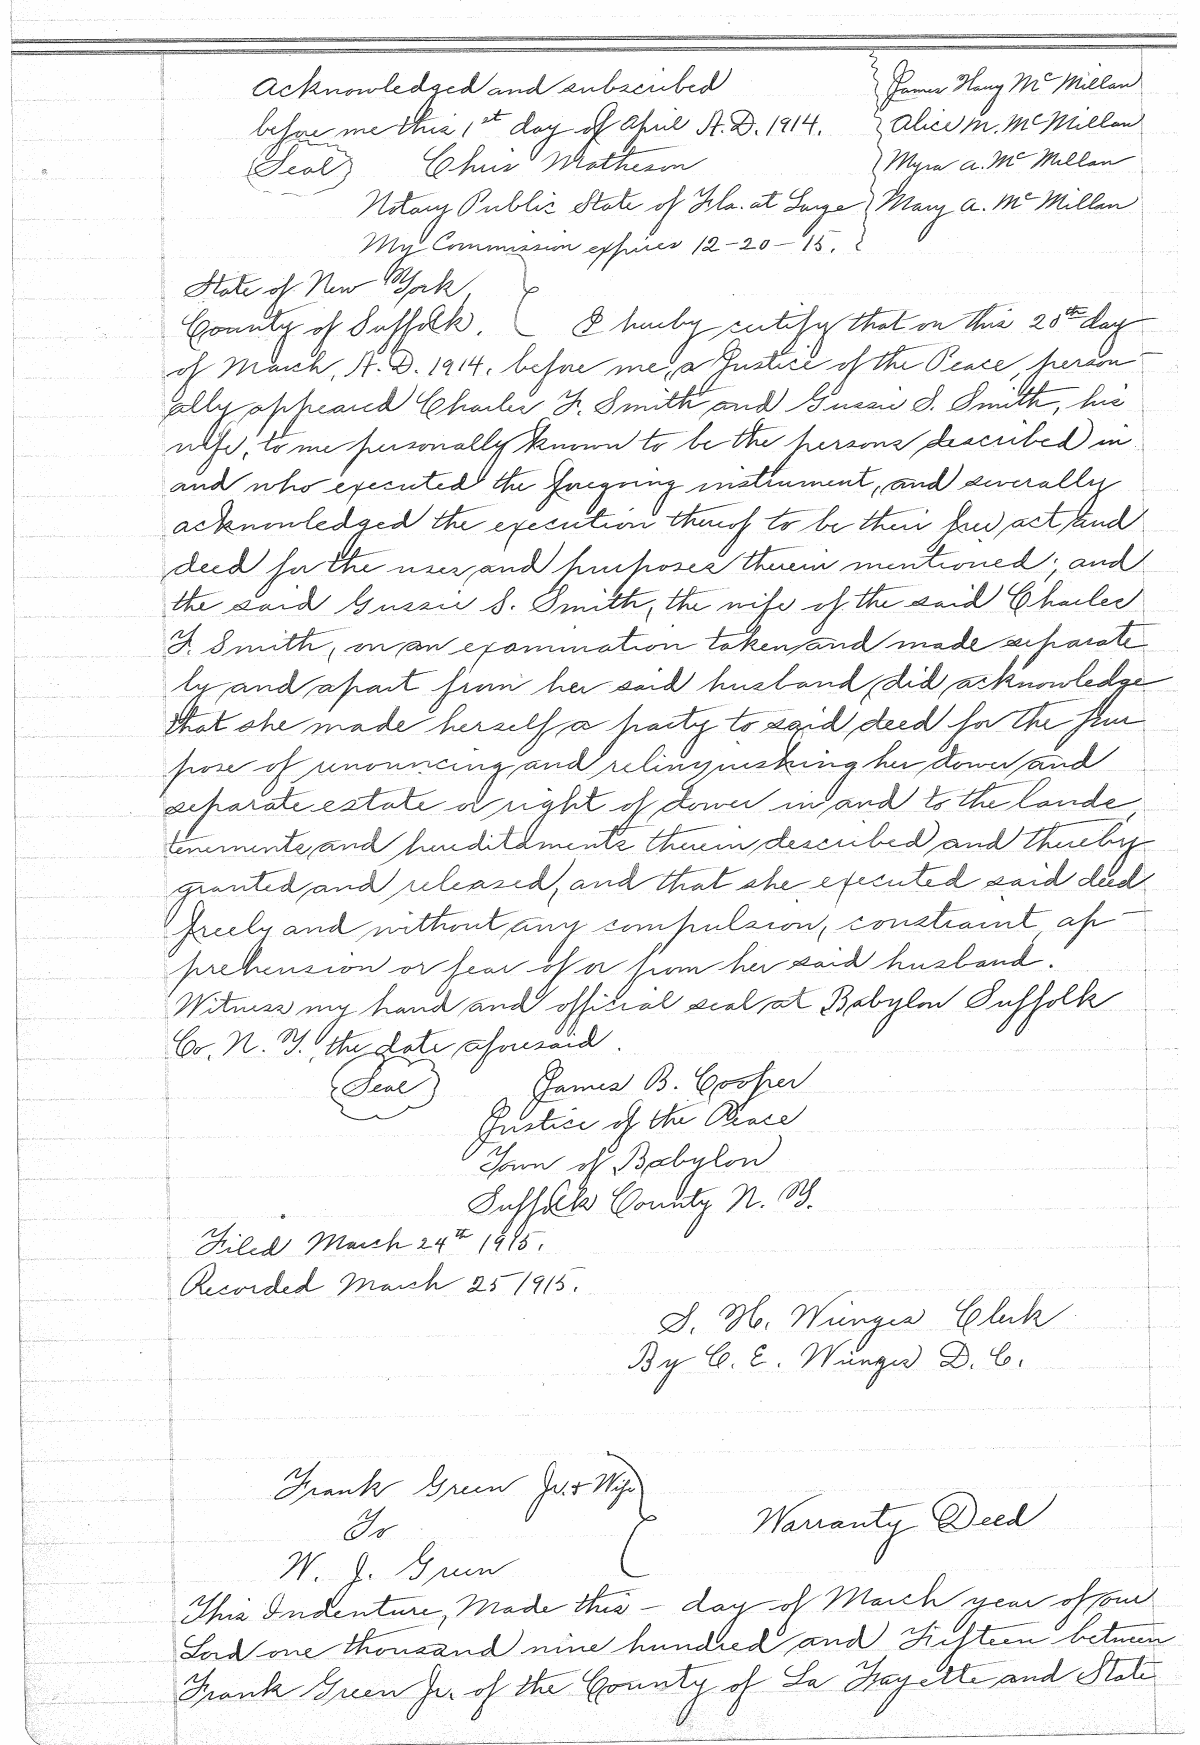 Acknowledged and subscribed
before me this 1st day of April A.D. 1914.
(Seal) Chris Matheson
Notary Public State of Fla. at Large
My Commission expires 12-20-15.
James Harry McMillan
Alice M. McMillan
Myra A. McMillan
Mary A. McMillan
State of New York
County of Suffolk. I hereby certify that on this 20th day
of March, A.D. 1914. before me, a Justice of the Peace, person
ally appeared Charles F. Smith and Gussie S. Smith, his
wife, to me personally known to be the persons described in
and who executed the foregoing instrument, and severally
acknowledged the execution thereof to be their free act and
deed for the uses and purposes therein mentioned; and
the said Gussie S. Smith, the wife of the said Charles
F. Smith, on an examination taken and made separate
ly and apart from her said husband, did acknowledge
that she made herself a party to said deed for the pur
pose of renouncing and relinquishing her dower and
separate estate or right of dower in and to the lands,
tenements, and hereditaments therein described and thereby
granted and released, and that she executed said deed
freely and without any compulsion, constraint, ap-
prehension or fear of or from her said husband.
Witness my hand and official seal at Babylon Suffolk
Co. N. Y. the date aforesaid.
(Seal) James B. Cooper
Justice of the Peace
Town of Babylon
Suffolk County N. Y.
Filed March 24th 1915.
Recorded March 25 1915.
S. H. Wienges Clerk
By C. E. Wienges D. C.
Frank Green Jr. & Wife
To
W. J. Green
Warranty Deed
This Indenture, Made this - day of March year of our
Lord one thousand nine hundred and Fifteen between
Frank Green Jr. of the County of La Fayette and State